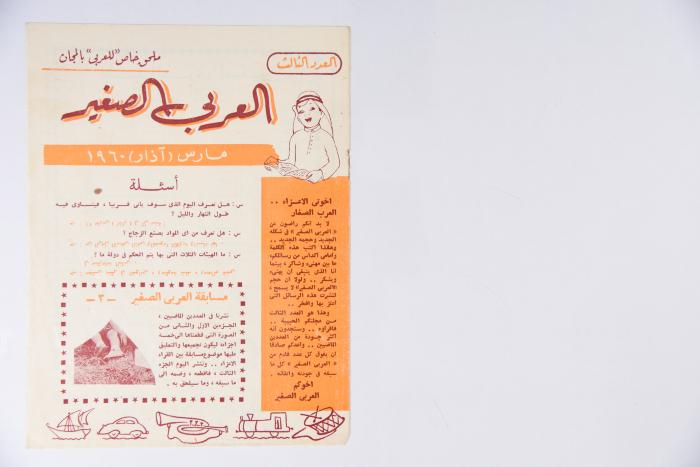 العدد الثالث
ملحق خاص "للعربي" بالمجان
العربي الصغير
مارس (آذار) ١٩٦٠
أسئلة
س : هل تعرف اليوم الذى سوف يأتى قريبا ، فيتساوى فيه
طول النهار والليل ؟
س : هل تعرف من اى المواد يصنع الزجاج ؟
س : ما الهيئات الثلاث التى بها يتم الحكم فى دولة ما ؟
مسابقة العربى الصغير — ٣ —
نشرنا فى العددين الماضيين ،
الجزءين الاول والثانى من
الصورة التى قطعناها الى خمسة
اجزاء ليكون تجميعها والتعليق
عليها موضوع مسابقة بين القراء
الاعزاء .. وننشر اليوم الجزء
الثالث ، فاقطعه ، وضمه الى
ما سبقه ، وما سيلحق به .
اخوتى الاعزاء ..
العرب الصغار
لا بد انكم راضون عن
« العربى الصغير » فى شكله
الجديد وحجمه الجديد ..
وهأنذا اكتب هذه الكلمة
وامامى اكداس من رسائلكم،
ما بين مهنىء وشاكر ، بينما
انا الذى ينبغى ان يهنىء
ويشكر .. ولولا ان حجم
«العربى الصغير» لا يسمح ،
لنشرت هذه الرسائل التى
اعتز بها وافخر ..
وهذا هو العدد الثالث
من مجلتكم الحبيبة ..
فاقرأوه .. وستجدون انه
اكثر جودة من العددين
الماضيين .. واعدكم صادقا
ان يفوق كل عدد قادم من
« العربى الصغير » كل ما
سبقه فى جودته واتقانه .
اخوكم
العربى الصغير